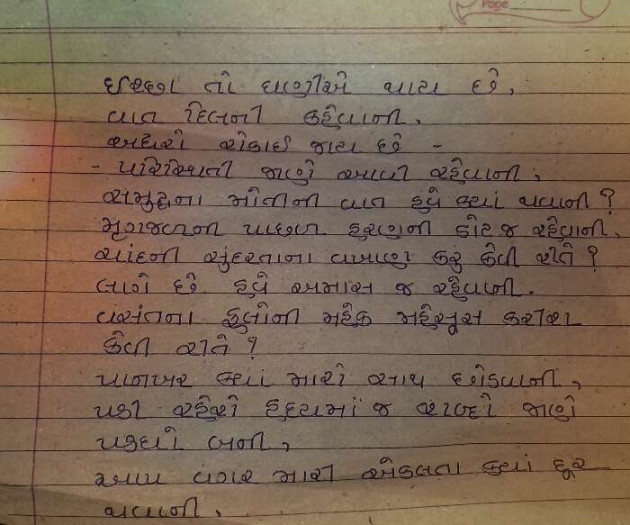 Page
ઈચ્છા તો ઘણીએ થાય છે,
વાત દિલની કહેવાની,
અધરો રોકાઈ જાય છે -
- પરિસ્થિતી જાણે આવી રહેવાની,
સમુદ્રના મોતીની વાત હવે ક્યાં થવાની?
મૃગજળની પાછળ હરણની દોટ જ રહેવાની.
ચાંદની સુંદરતાના વખાણ કરુ કેવી રીતે?
લાગે છે હવે અમાસ જ રહેવાની.
વસંતના ફુલોની મહેક મહેસૂસ કરીશ
કેવી રીતે?
પાનખર ક્યાં મારો સાથ છોડવાની,
પડી રહેશે હૃદયમાં જ શબ્દો જાણે
પડઘો બની,
આપ વગર મારી એકલતા ક્યાં દૂર
થવાની.